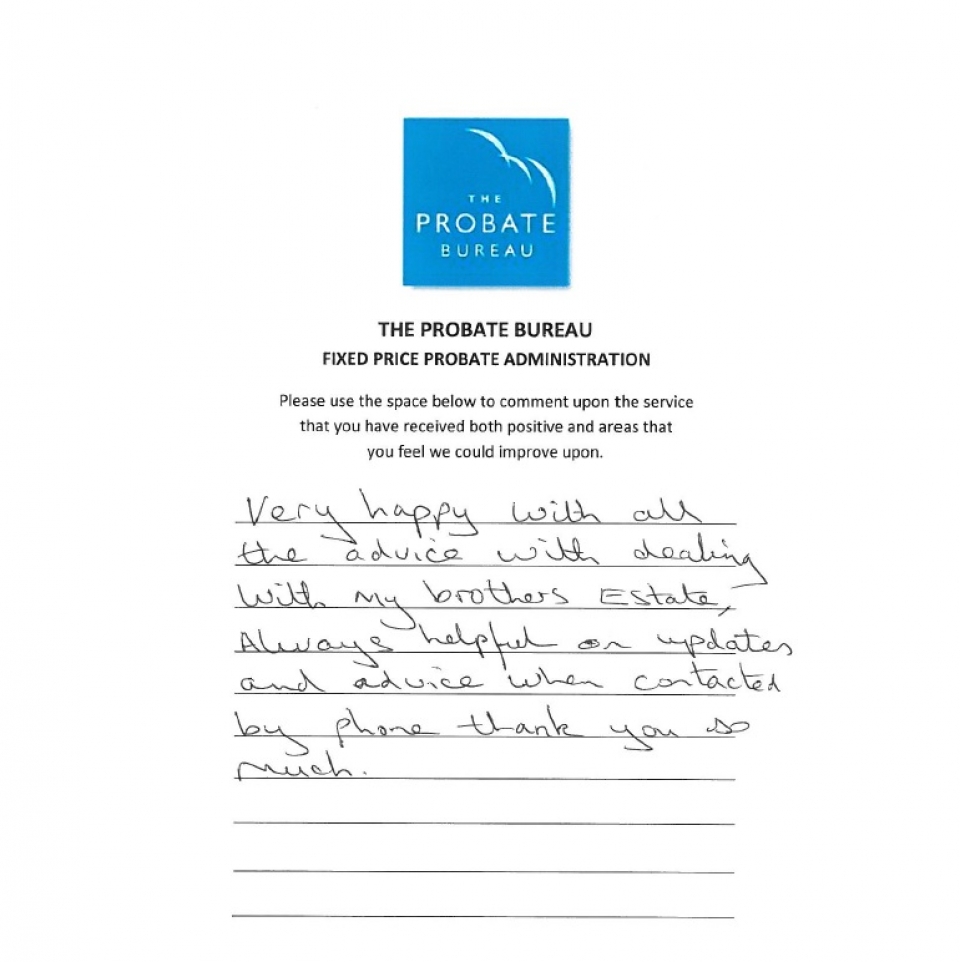 THE
PROBATE
BUREAU
THE PROBATE BUREAU
FIXED PRICE PROBATE ADMINISTRATION
Please use the space below to comment upon the service
that you have received both positive and areas that
you feel we could improve upon.
Very happy with all
the advice with dealing
with my brothers Estate,
Always helpful on updates
and advice when contacted
by phone thank you so
much.